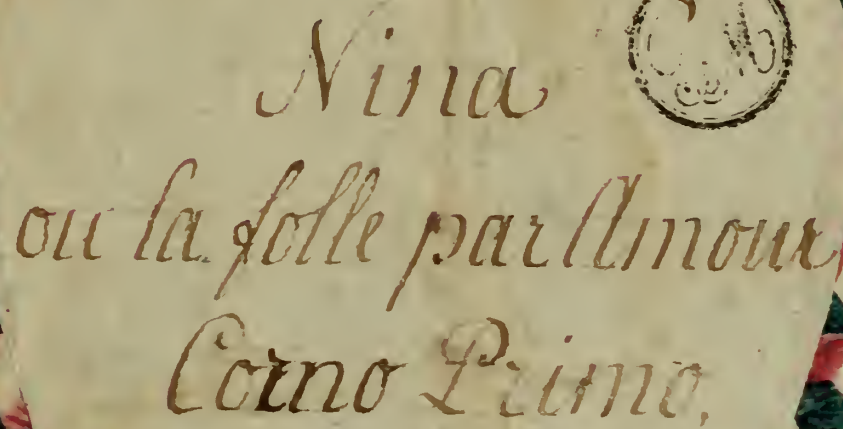 Nina
ou la folle par Amour
Corno Primo,